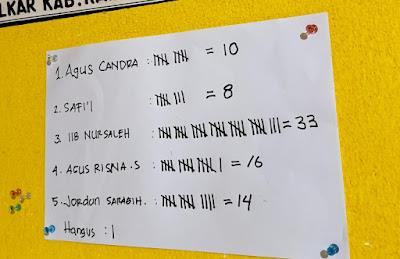 LKAR KAB.
1. Agus CANDRA : 𝍸 𝍸 = 10
2. SAFI'I : 𝍸 III = 8
3. IIB NURSALEH : 𝍸 𝍸 𝍸 𝍸 𝍸 𝍸 III = 33
4. AGUS RISNA.S : 𝍸 𝍸 𝍸 I = 16
5. Jordan SARABIH. : 𝍸 𝍸 IIII = 14
Hangus : I